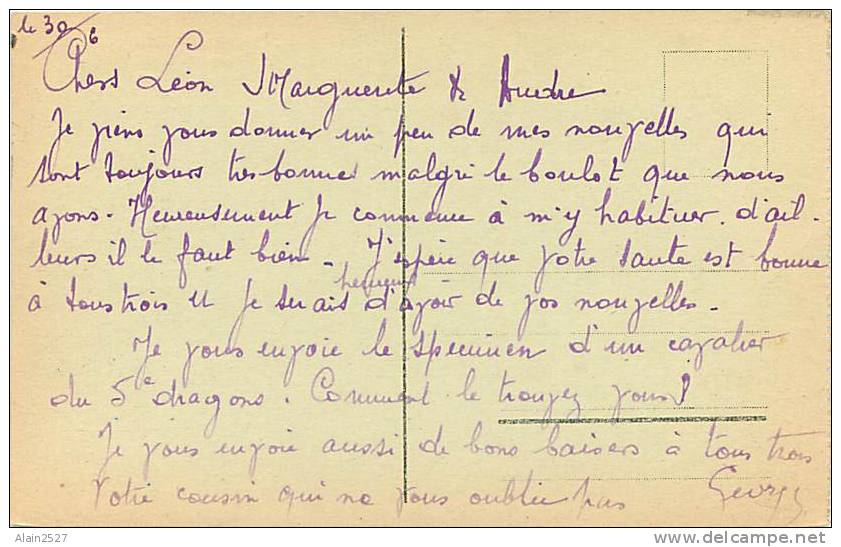 le 30/6
Chers Léon Marguerite & André
Je viens vous donner un peu de mes nouvelles qui
sont toujours très bonnes malgré le boulot que nous
avons. Heureusement je commence à m'y habituer. d'ail-
leurs il le faut bien. J'espère que votre santé est bonne
heureux
à tous trois et je serais d'avoir de vos nouvelles.
Je vous envoie le spécimen d'un cavalier
du 5e dragons. Comment le trouvez vous?
Je vous envoie aussi de bons baisers à tous trois
Votre cousin qui ne vous oublie pas Georges
Alain2527
www.delcampe.net